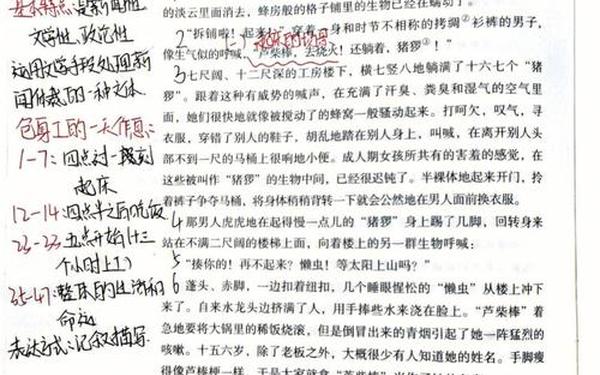 基本特点：是新闻性
文学性、政论性
运用文学手段处理新
闻体裁的一种文体
包身工的一天作息：
1-7：四点过一刻
起床
12-14：四点半之后吃饭
五点开始十三
个小时上工
35-47：整体的生活和
命运
表达方式：记叙描写
的淡云里面消去，蜂房般的格子铺里的生物已经在蠕动了。
2 “拆铺啦！起来！”穿着一身和时节不相称的拷绸②衫裤的男子，
像生气似的呼喊，“芦柴棒，去烧火！还躺着，猪猡③！”
3 七尺阔、十二尺深的工房楼下，横七竖八地躺满了十六七个“猪
猡”。跟着这种有威势的喊声，在充满了汗臭、粪臭和湿气的空气里
面，她们很快地就像被搅动了的蜂窝一般骚动起来。打呵欠，叹气，寻
衣服，穿错了别人的鞋子，胡乱地踏在别人身上，叫喊，在离开别人头
部不到一尺的马桶上很响地小便。成人期女孩所共有的害羞的感觉，在
这些被叫作“猪猡”的生物中间，已经很迟钝了。半裸体地起来开门，拎
着裤子争夺马桶，将身体稍稍背转一下就会公然地在男人面前换衣服。
4 那男人虎虎地在起得慢一点儿的“猪猡”身上踢了几脚，回转身来
站在不满二尺阔的楼梯上面，向着楼上的另一群生物呼喊：
5 “揍你的！再不起来？懒虫！等太阳上山吗？”
6 蓬头、赤脚，一边扣着纽扣，几个睡眼惺忪的“懒虫”从楼上冲下
来了。自来水龙头边挤满了人，用手捧些水来浇在脸上。“芦柴棒”着
急地要将大锅里的稀饭烧滚，但是倒冒出来的青烟引起了她一阵猛烈的
咳嗽。十五六岁，除了老板之外，大概很少有人知道她的姓名。手脚瘦
得像芦柴梗一样，于是大家就拿“芦柴棒”当作了她的